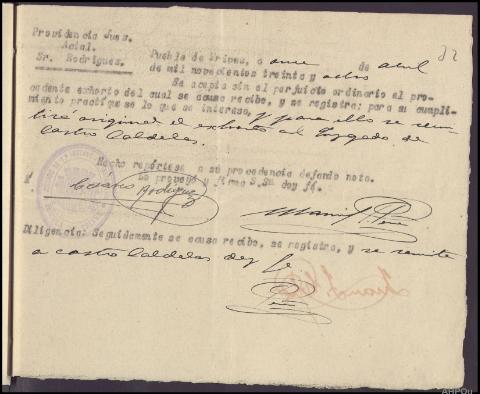 82
Providencia Juez.
Actal.
Sr. Rodriguez.
Puebla de Trives, a once de abril
de mil novecientos treinta y ocho
Se acepta sin el perjuicio ordinario el pro-
cedente exhorto del cual se acuse recibo, y se registre; para su cumpli-
miento practíquese lo que se interesa, y para ello se remi-
tirá original el exhorto al Juzgado de
Castro Caldelas.
Hecho repórtese a su procedencia dejando nota.
Lo proveyó y firma S.Sª doy fé.
Rodriguez
Diligencia: Seguidamente se acusa recibo, se registra, y se remite
a Castro Caldelas doy fe
AHPOu